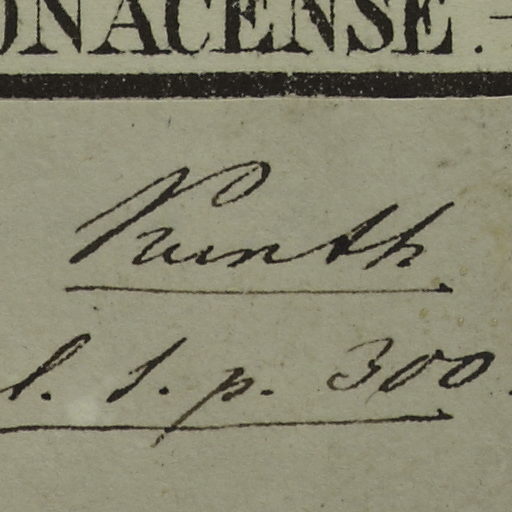 ONACENSE. –
Kunth.
l. 1. p. 300.